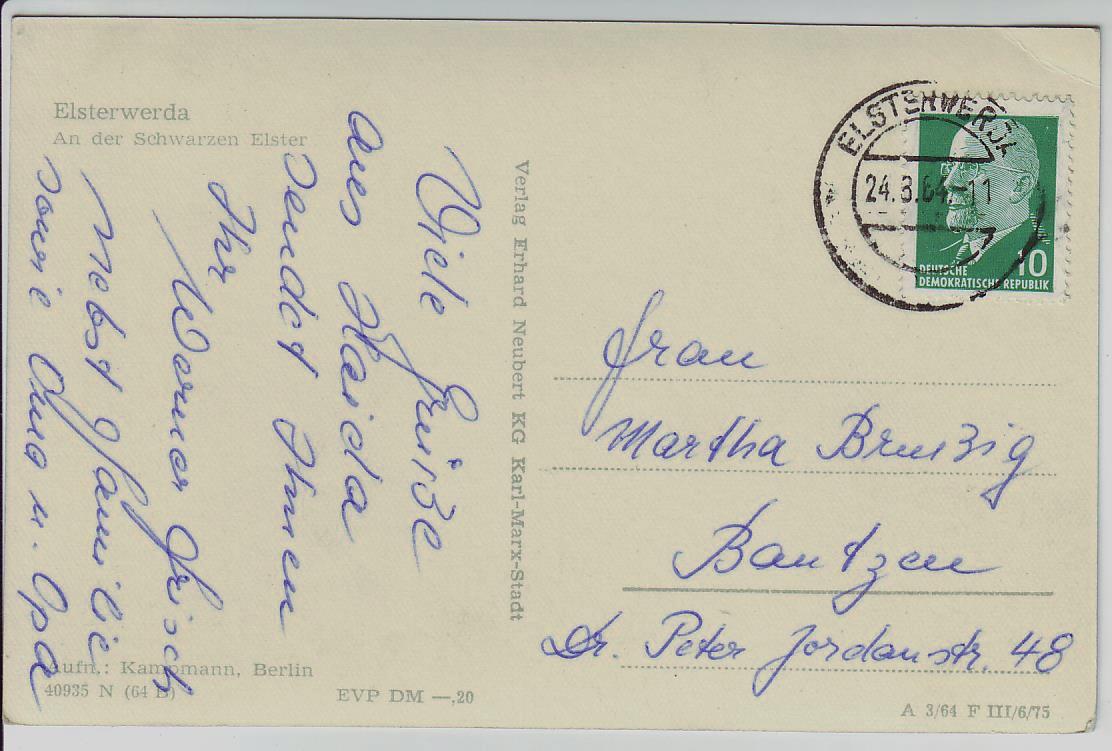 Elsterwerda
An der Schwarzen Elster
Viele Grüße
aus Haida
sendet Ihnen
Ihr
Werner Frisch
nebst Familie
sowie Oma u. Opa
Verlag Erhard Neubert KG Karl-Marx-Stadt
Aufn.: Kampmann, Berlin
40935 N (64 B)
EVP DM —,20
ELSTERWERDA
24.8.64.-11
10
DEUTSCHE
DEMOKRATISCHE REPUBLIK
Frau
Martha
Bautzen
Dr. Peter Jordanstr. 48
A 3/64 F III/6/75